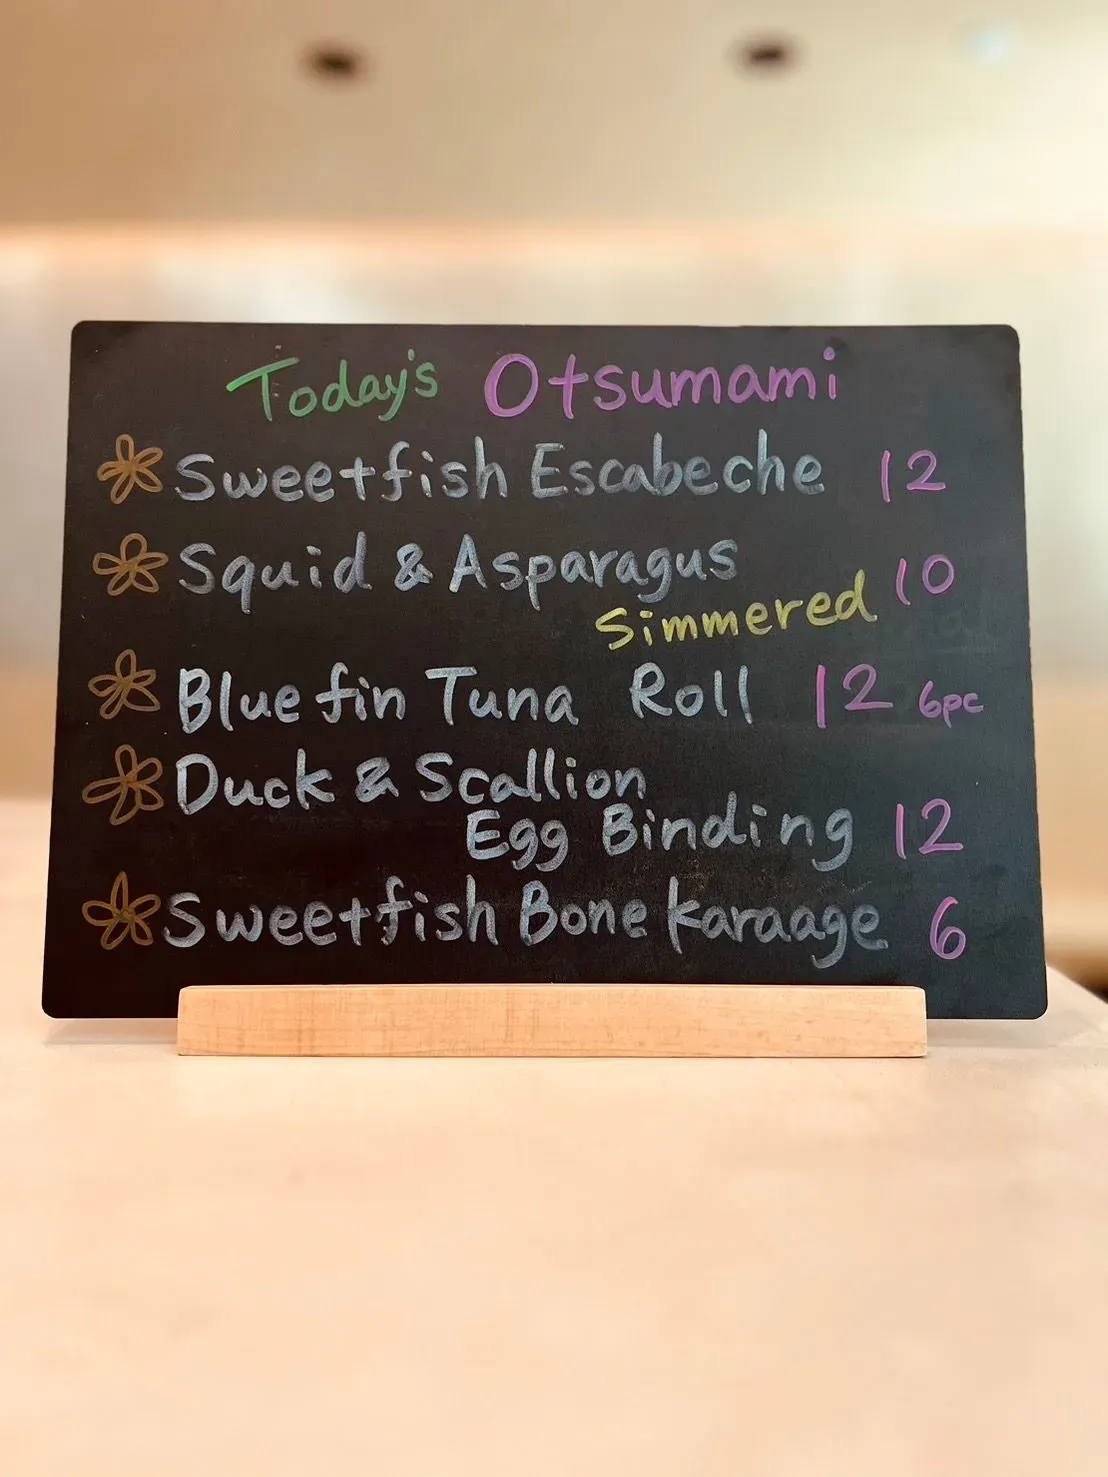 Today's Otsumami
Sweetfish Escabeche 12
Squid & Asparagus
Simmered 10
Bluefin Tuna Roll 12 6pc
Duck & Scallion
Egg Binding 12
Sweetfish Bone Karaage 6